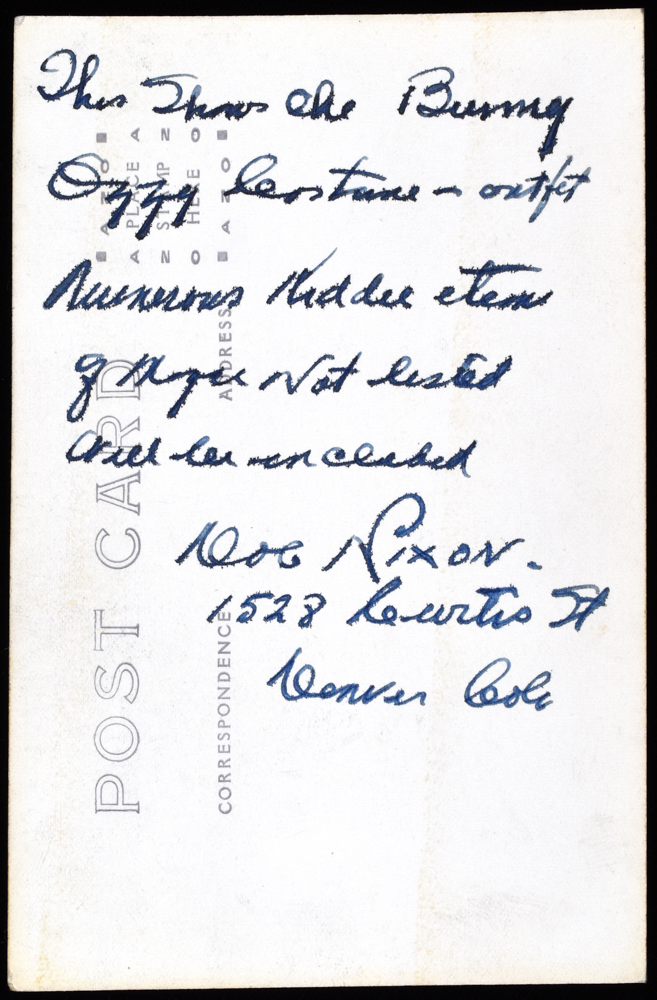 This Shows the Bunny
Ozzy Costume - outfit
Numerous Kiddie items
of Magic Not listed
Will be included
Doc Nixon.
1528 Curtis St
Denver Colo
POST CARD
CORRESPONDENCE
ADDRESS
AZO
PLACE
STAMP
HERE
AZO